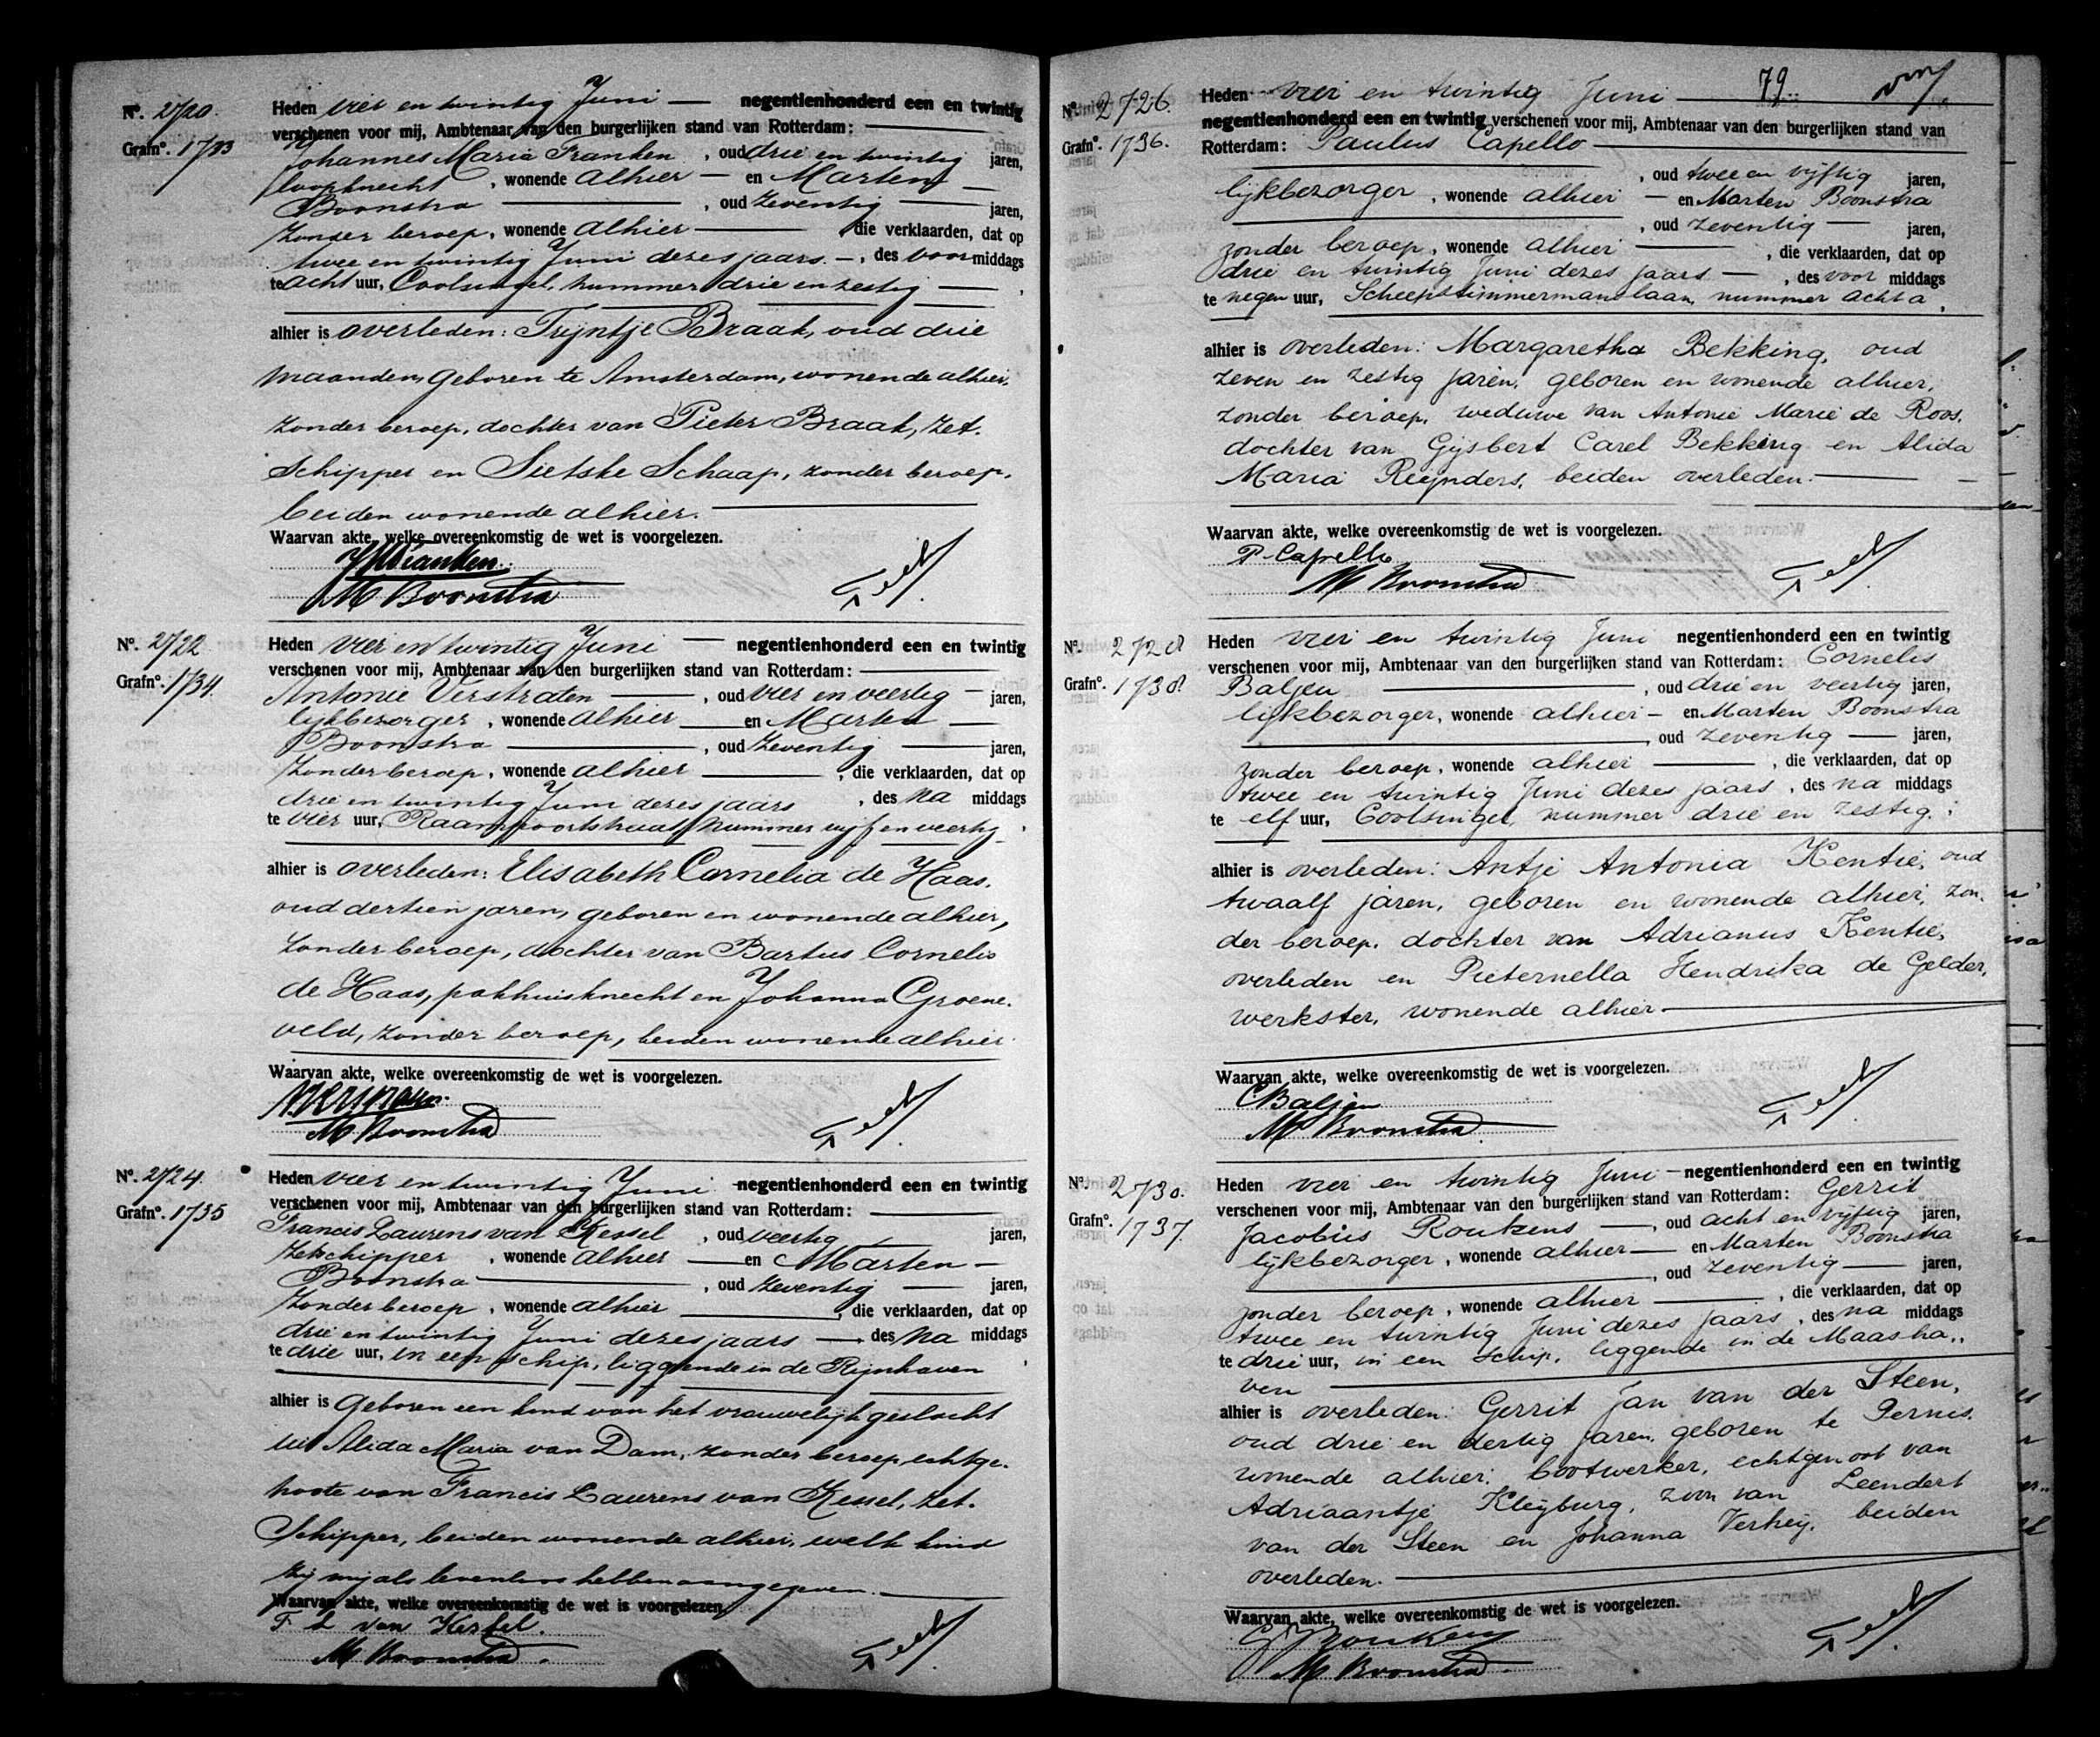 Nº. 2720.
Grafnº. 1733
Heden vier en twintig Juni — negentienhonderd een en twintig
verschenen voor mij, Ambtenaar van den burgerlijken stand van Rotterdam:
Johannes Maria Franken, oud drie en twintig jaren,
loopknecht, wonende alhier — en Marten
Boonstra, oud zeventig jaren,
zonder beroep, wonende alhier, die verklaarden, dat op
twee en twintig Juni dezes jaars —, des voormiddags
te acht uur, Coolsingel, nummer drie en zestig
alhier is overleden: Trijntje Braak, oud drie
maanden, geboren te Amsterdam, wonende alhier,
zonder beroep, dochter van Pieter Braak, zet-
schipper en Sietske Schaap, zonder beroep,
beiden wonende alhier.
Waarvan akte, welke overeenkomstig de wet is voorgelezen.
JMFranken.
M Boonstra
Nº. 2722
Grafnº. 1734.
Heden vier en twintig Juni — negentienhonderd een en twintig
verschenen voor mij, Ambtenaar van den burgerlijken stand van Rotterdam:
Antonie Verstraten, oud vier en veertig — jaren,
lijkbezorger, wonende alhier en Marten
Boonstra, oud zeventig jaren,
zonder beroep, wonende alhier, die verklaarden, dat op
drie en twintig Juni dezes jaars, des na middags
te vier uur, Raampoortstraat, nummer vijf en veertig
alhier is overleden: Elisabeth Cornelia de Haas,
oud dertien jaren, geboren en wonende alhier,
zonder beroep, dochter van Bartus Cornelis
de Haas, pakhuisknecht en Johanna Groene-
veld, zonder beroep, beiden wonende alhier.
Waarvan akte, welke overeenkomstig de wet is voorgelezen.
M Boonstra
Nº. 2724.
Grafnº. 1735
Heden vier en twintig Juni negentienhonderd een en twintig
verschenen voor mij, Ambtenaar van den burgerlijken stand van Rotterdam:
Francis Laurens van Kessel, oud veertig jaren,
zetschipper, wonende alhier en Marten —
Boonstra, oud zeventig jaren,
zonder beroep, wonende alhier, die verklaarden, dat op
drie en twintig Juni dezes jaars —, des na middags
te drie uur, in een schip, liggende in de Rijnhaven
alhier is geboren een kind van het vrouwelijk geslacht
uit Alida Maria van Dam, zonder beroep, echtge-
noote van Francis Laurens van Kessel, zet-
schipper, beiden wonende alhier, welk kind
zij mij als levenloos hebben aangegeven.
Waarvan akte, welke overeenkomstig de wet is voorgelezen.
F L van Kessel.
M Boonstra.
79
Nº. 2726.
Grafnº. 1736.
Heden vier en twintig Juni
negentienhonderd een en twintig verschenen voor mij, Ambtenaar van den burgerlijken stand van
Rotterdam: Paulus Capello
, oud twee en vijftig jaren,
lijkbezorger, wonende alhier — en Marten Boonstra
, oud zeventig — jaren,
zonder beroep, wonende alhier, die verklaarden, dat op
drie en twintig Juni dezes jaars —, des voor middags
te negen uur, Scheepstimmermanslaan, nummer acht a,
alhier is overleden: Margaretha Bekking, oud
zeven en zestig jaren, geboren en wonende alhier,
zonder beroep, weduwe van Antonie Marie de Roos,
dochter van Gijsbert Carel Bekking en Alida
Maria Reijnders, beiden overleden.
Waarvan akte, welke overeenkomstig de wet is voorgelezen.
P. Capello
M Boonstra
Nº. 2728
Grafnº. 1738
Heden vier en twintig Juni negentienhonderd een en twintig
verschenen voor mij, Ambtenaar van den burgerlijken stand van Rotterdam: Cornelis
Baljeu, oud drie en veertig jaren,
lijkbezorger, wonende alhier — en Marten Boonstra
, oud zeventig — jaren,
zonder beroep, wonende alhier, die verklaarden, dat op
twee en twintig Juni dezes jaars, des na middags
te elf uur, Coolsingel, nummer drie en zestig,
alhier is overleden: Antje Antonia Kentie, oud
twaalf jaren, geboren en wonende alhier, zon-
der beroep, dochter van Adrianus Kentie,
overleden en Pieternella Hendrika de Gelder,
werkster, wonende alhier
Waarvan akte, welke overeenkomstig de wet is voorgelezen.
CBaljeu
M Boonstra
Nº. 2730.
Grafnº. 1737.
Heden vier en twintig Juni — negentienhonderd een en twintig
verschenen voor mij, Ambtenaar van den burgerlijken stand van Rotterdam: Gerrit
Jacobus Roukens —, oud acht en vijftig jaren,
lijkbezorger, wonende alhier — en Marten Boonstra
, oud zeventig — jaren,
zonder beroep, wonende alhier, die verklaarden, dat op
twee en twintig Juni dezes jaars, des na middags
te drie uur, in een schip, liggende in de Maasha-
ven
alhier is overleden: Gerrit Jan van der Steen,
oud drie en dertig jaren, geboren te Pernis,
wonende alhier, bootwerker, echtgenoot van
Adriaantje Kleijburg, zoon van Leendert
van der Steen en Johanna Verheij, beiden
overleden.
Waarvan akte, welke overeenkomstig de wet is voorgelezen.
GJRoukens
M Boonstra.